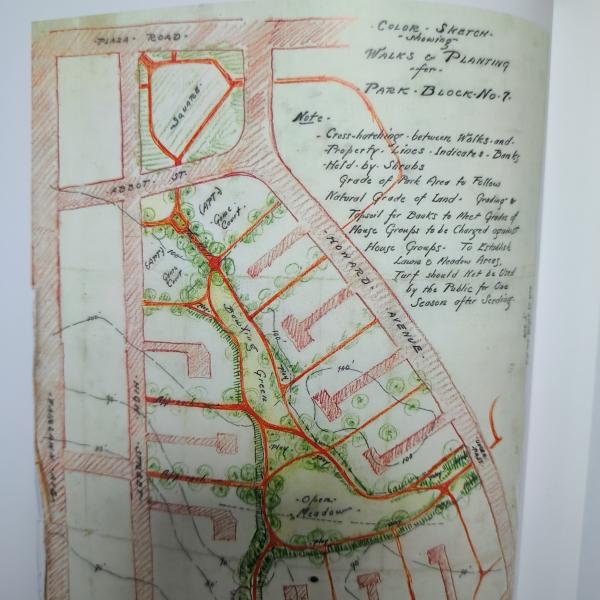 COLOR · SKETCH ·
- showing -
WALKS & PLANTING
- for -
PARK · BLOCK · No. 7.
Note -
- Cross-hatching · between Walks · and -
Property · Lines · Indicates · Banks
- Held · by · Shrubs
Grade of Park Area to Follow
Natural Grade of Land - Grading &
Topsoil for Banks to Meet Grades of
House Groups to be Charged against
House Groups - To Establish
Lawns & Meadow Areas,
Turf should Not be Used
by the Public for One
Season after Seeding -
· PLAZA · ROAD ·
· SQUARE ·
ABBOT · ST.
HOWARD · AVENUE ·
(APPT.)
Game
Court.
(APPT.)
Game
Court.
Bowling
Green
100'
100'
100
Play
Play
Approach
Approach
- Open -
Meadow
Play
Play
HIGH · STREET
FAIRLAWN AVE.
UNDER
PASS